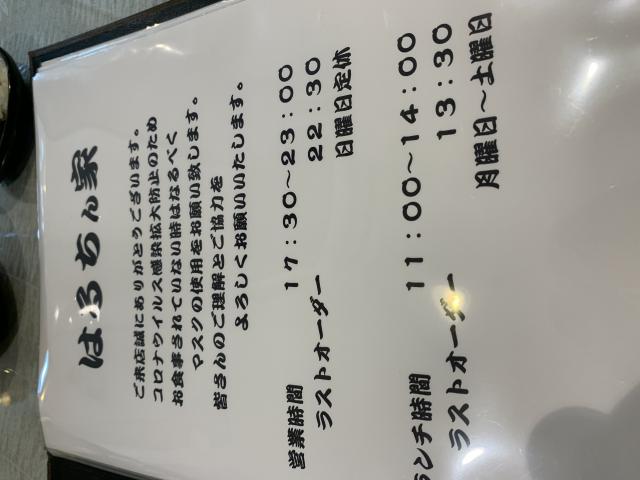 はるちん家
ご来店誠にありがとうございます。
コロナウイルス感染拡大防止のため
お食事されていない時はなるべく
マスクの使用をお願い致します。
皆さんのご理解とご協力を
よろしくお願いいたします。
営業時間 17:30～23:00
ラストオーダー 22:30
日曜日定休
ランチ時間 11:00～14:00
ラストオーダー 13:30
月曜日～土曜日